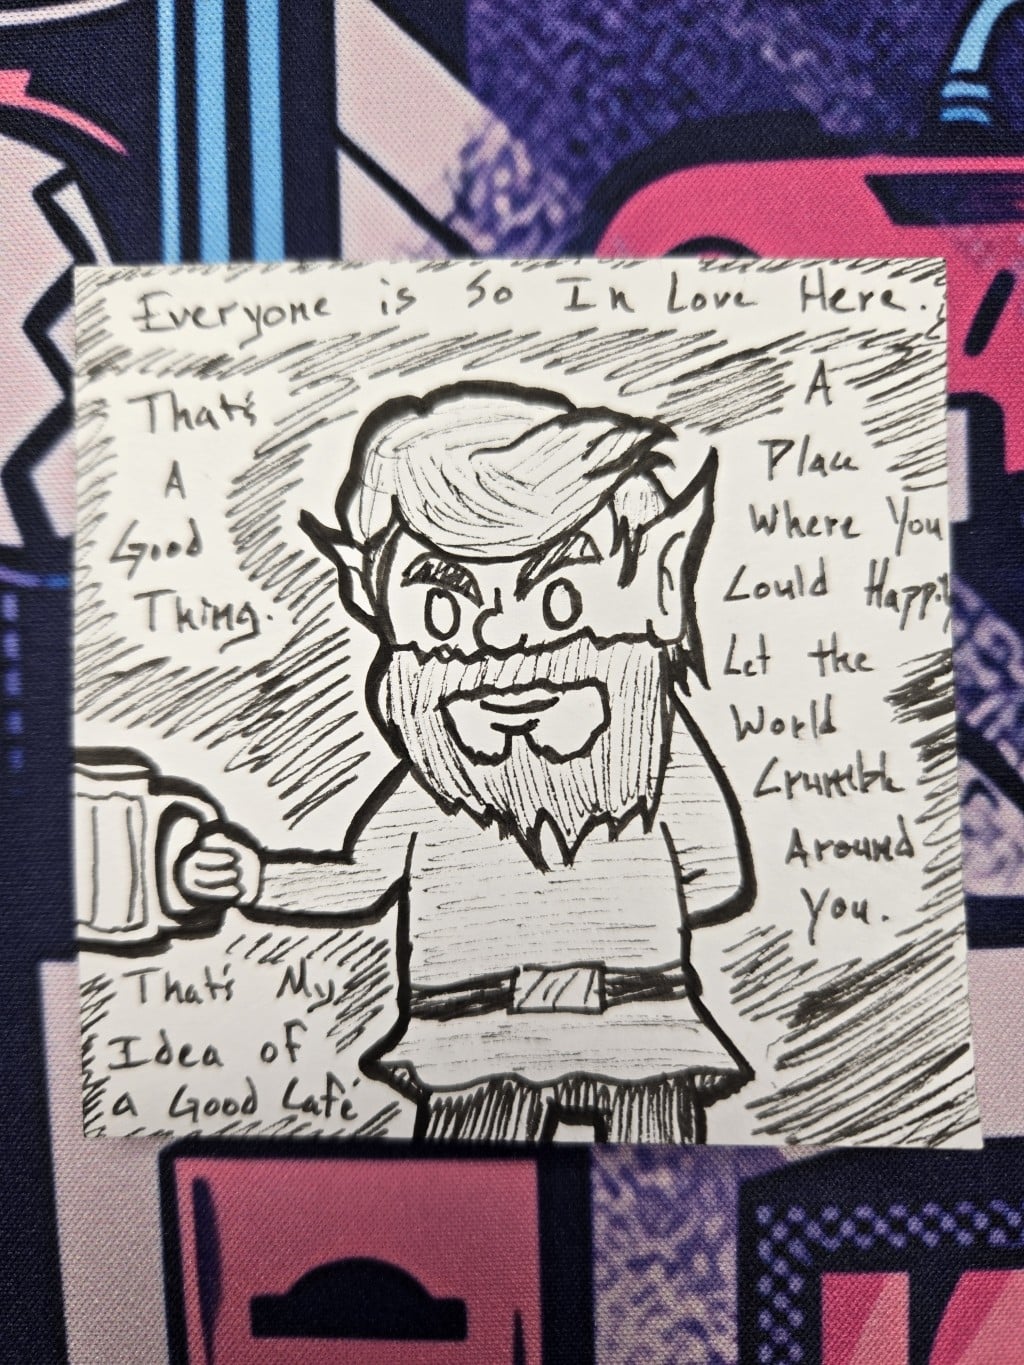 Everyone is So In Love Here.
That's
A
Good
Thing.
A
Place
Where You
Could Happily
Let the
World
Crumble
Around
You.
That's My
Idea of
a Good Café